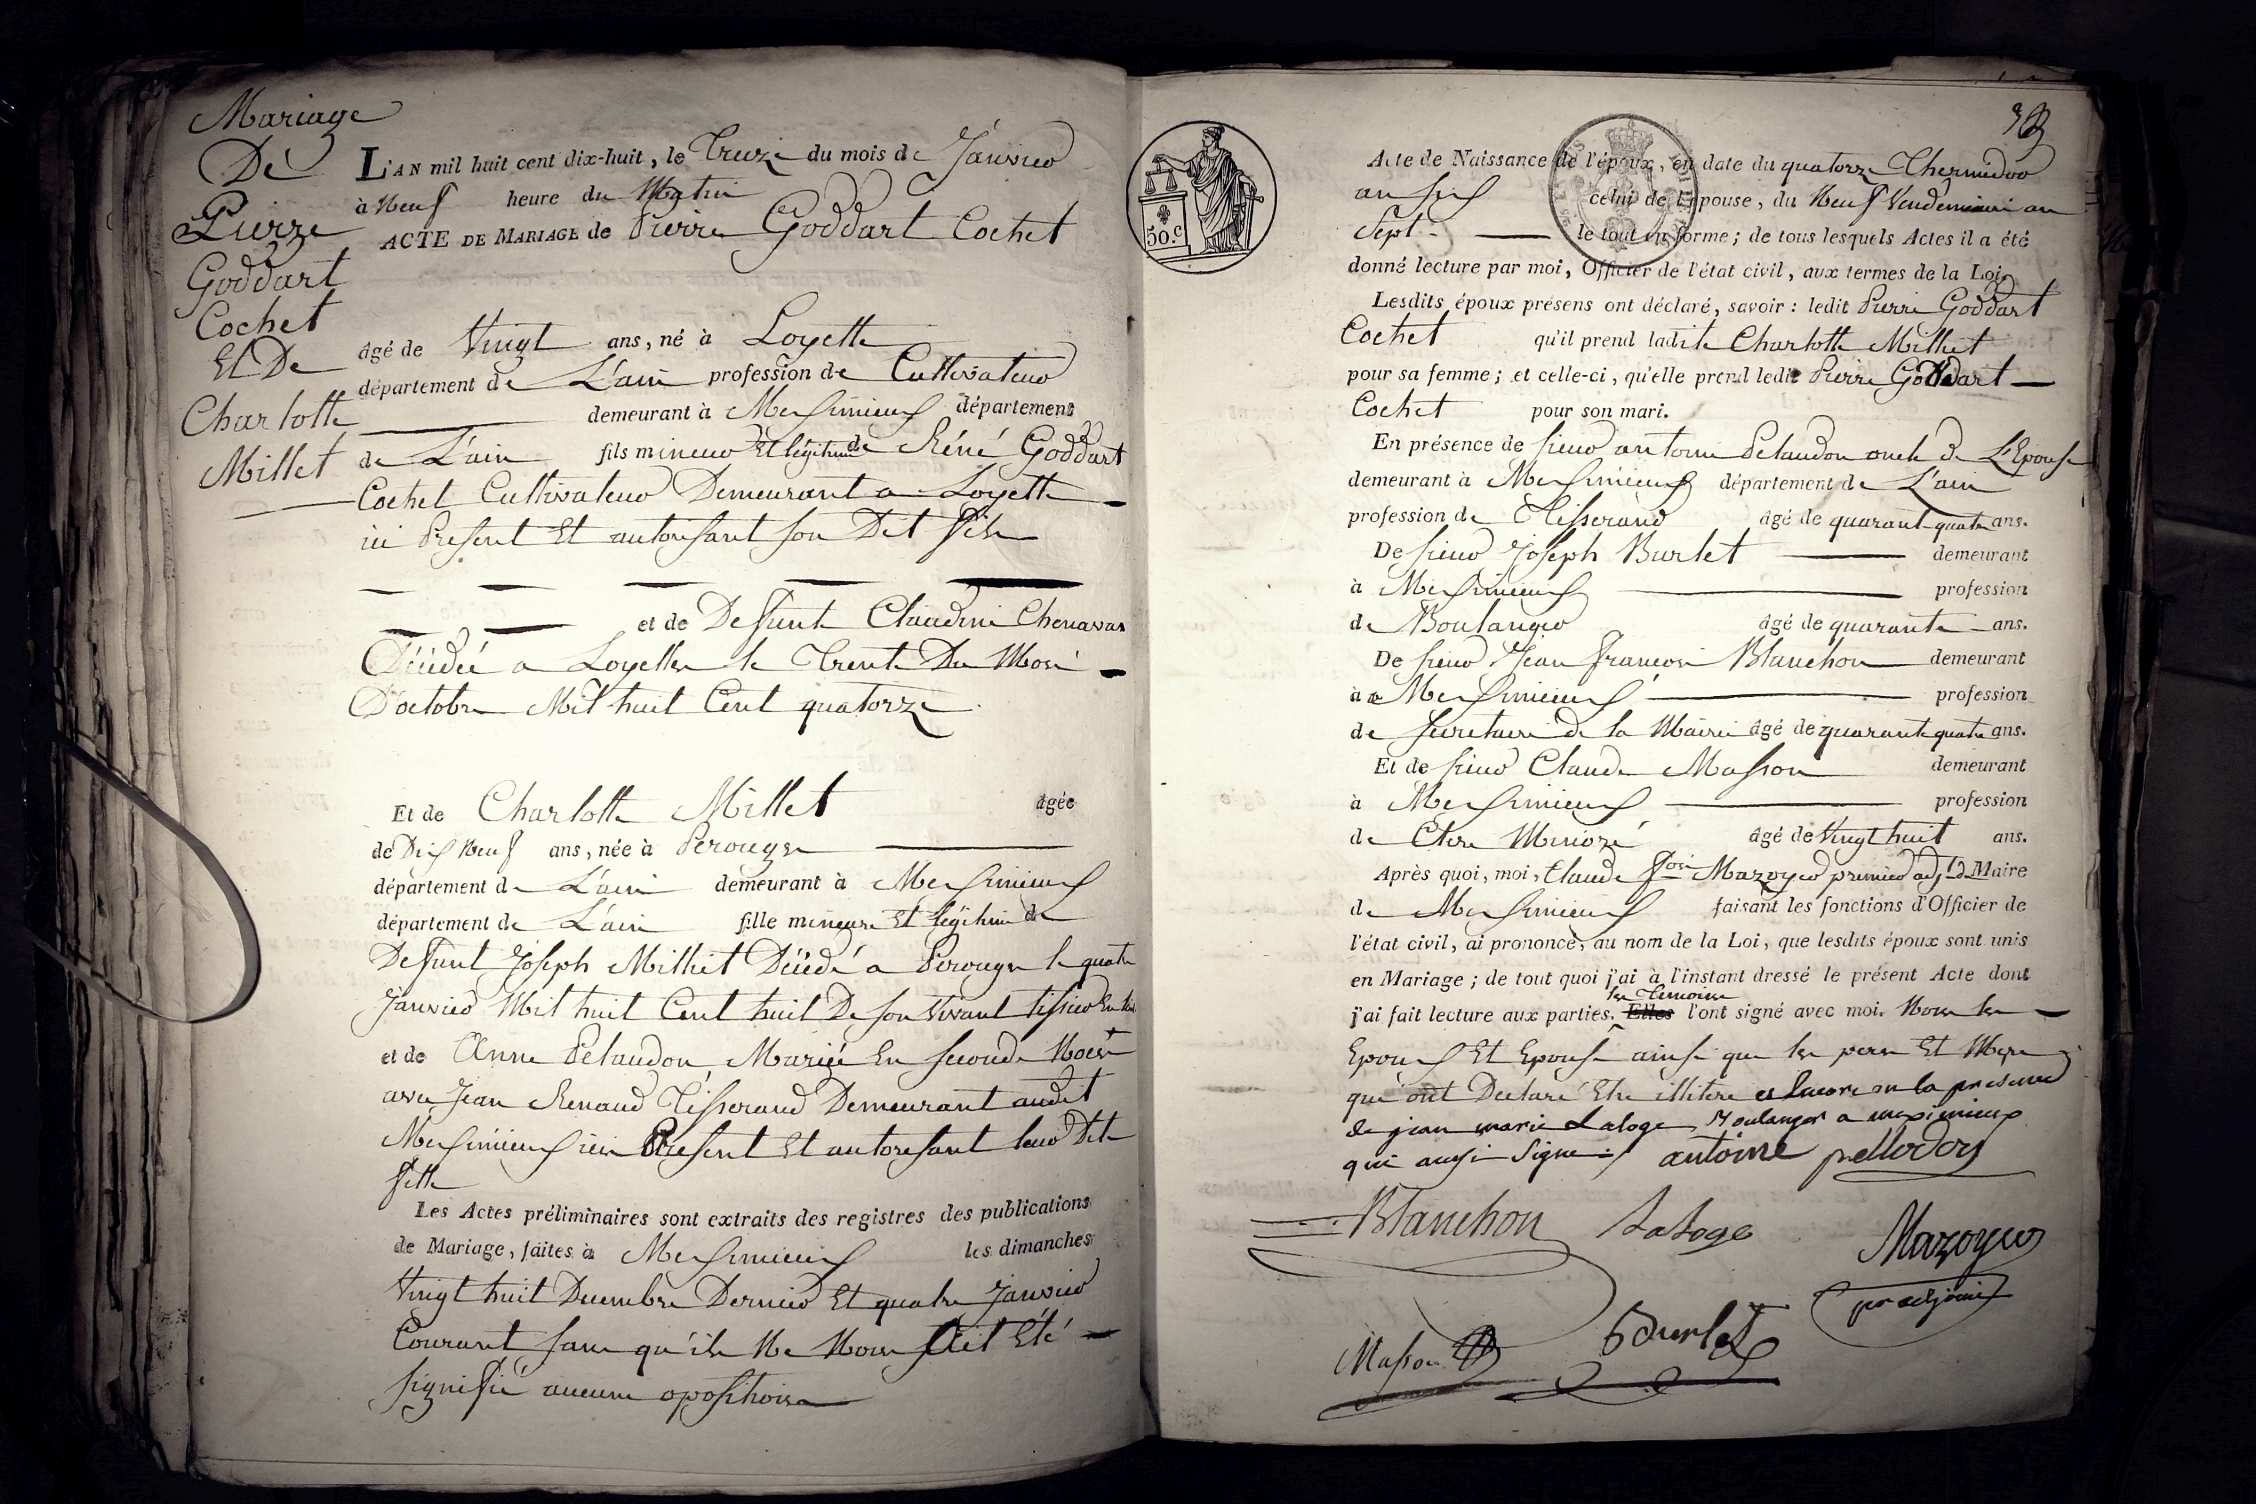 Mariage
De
Pierre
Goddart
Cochet
Et De
Charlotte
Millet
L'AN mil huit cent dix-huit, le Treize du mois de Janvier
à Neuf heure du Matin
ACTE DE MARIAGE de Pierre Goddart Cochet
âgé de Vingt ans, né à Loyette
département de L'ain profession de Cultivateur
demeurant à Meximieux département
de L'ain fils mineur Et légitime de Réné Goddart
Cochet Cultivateur Demeurant a Loyette
ici Present Et autorisant son Dit fils
et de Defunte Claudine Chenavas
Décédée a Loyettes le Trente Du Mois
D'octobre Mil huit Cent quatorze
Et de Charlotte Millet âgée
de Dix Neuf ans, née à Perouges
département de L'ain demeurant à Meximieux
département de L'ain fille mineure Et légitime de
Defunt Joseph Millet Décédé a Perouges le quatre
Janvier Mil huit Cent huit De son Vivant tissier En
et de Anne Pelaudon Mariée En seconde Noces
avec Jean Renaud Tisserand Demeurant audit
Meximieux ici Present Et autorisant leur Dite
fille
Les Actes préliminaires sont extraits des registres des publications
de Mariage, faites à Meximieux les dimanches
Vingt huit Decembre Dernier Et quatre Janvier
Courant sans qu'ils Ne Nous Ait Eté
signifié aucune opositions
50.c
Acte de Naissance de l'époux, en date du quatorze Thermidor
an six celui de l'épouse, du Neuf Vendemiaire an
Sept. le tout en forme; de tous lesquels Actes il a été
donné lecture par moi, Officier de l'état civil, aux termes de la Loi.
Lesdits époux présens ont déclaré, savoir: ledit Pierre Goddart
Cochet qu'il prend ladite Charlotte Millet
pour sa femme; et celle-ci, qu'elle prend ledit Pierre Goddart
Cochet pour son mari.
En présence de sieur antoine Pelaudon oncle de L'Epouse
demeurant à Meximieux département de L'ain
profession de Tisserand âgé de quarante quatre ans.
De sieur Joseph Burlet demeurant
à Meximieux profession
de Boulanger âgé de quarante ans.
De sieur Jean francois Blanchon demeurant
à Meximieux profession
de secretaire de la Mairie âgé de quarante quatre ans.
Et de sieur Claude Masson demeurant
à Meximieux profession
de Clerc âgé de Vingt huit ans.
Après quoi, moi, Claude fois Mazoyer premier adjt de Maire
de Meximieux faisant les fonctions d'Officier de
l'état civil, ai prononcé, au nom de la Loi, que lesdits époux sont unis
en Mariage; de tout quoi j'ai à l'instant dressé le présent Acte dont
les Temoins
j'ai fait lecture aux parties. Elles l'ont signé avec moi. Non les
Epoux Et Epouse ainsi que les peres Et Mere
qui ont Declaré Etre illitere et Encore en la presence
de jean marie Laloge Boulanger a meximieux
qui aussi Signe antoine pellodon
Blanchon Laloge Mazoyer
pr adjoint
Masson Burlet